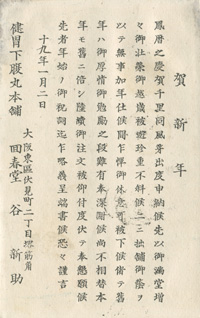 賀新年
鳳暦之慶賀千里同風芽出度申納候先以満堂増
々御壮栄御越歳被遊珍重不斜候
拙舗御蔭ヲ
以テ無事加年仕候間乍憚御休意可被下候偖テ旧
年中ハ御勉励之段難有奉深謝候尚不相替本
年モ旧ニ倍シ陸続御注文被仰付度伏テ奉懇願候
先者年始ノ御祝詞迄乍略義呈端書候恐々謹言
十九年一月二日
大阪東区伏見町二丁目堺筋角
健胃下腹丸本舗
回春堂 谷新助